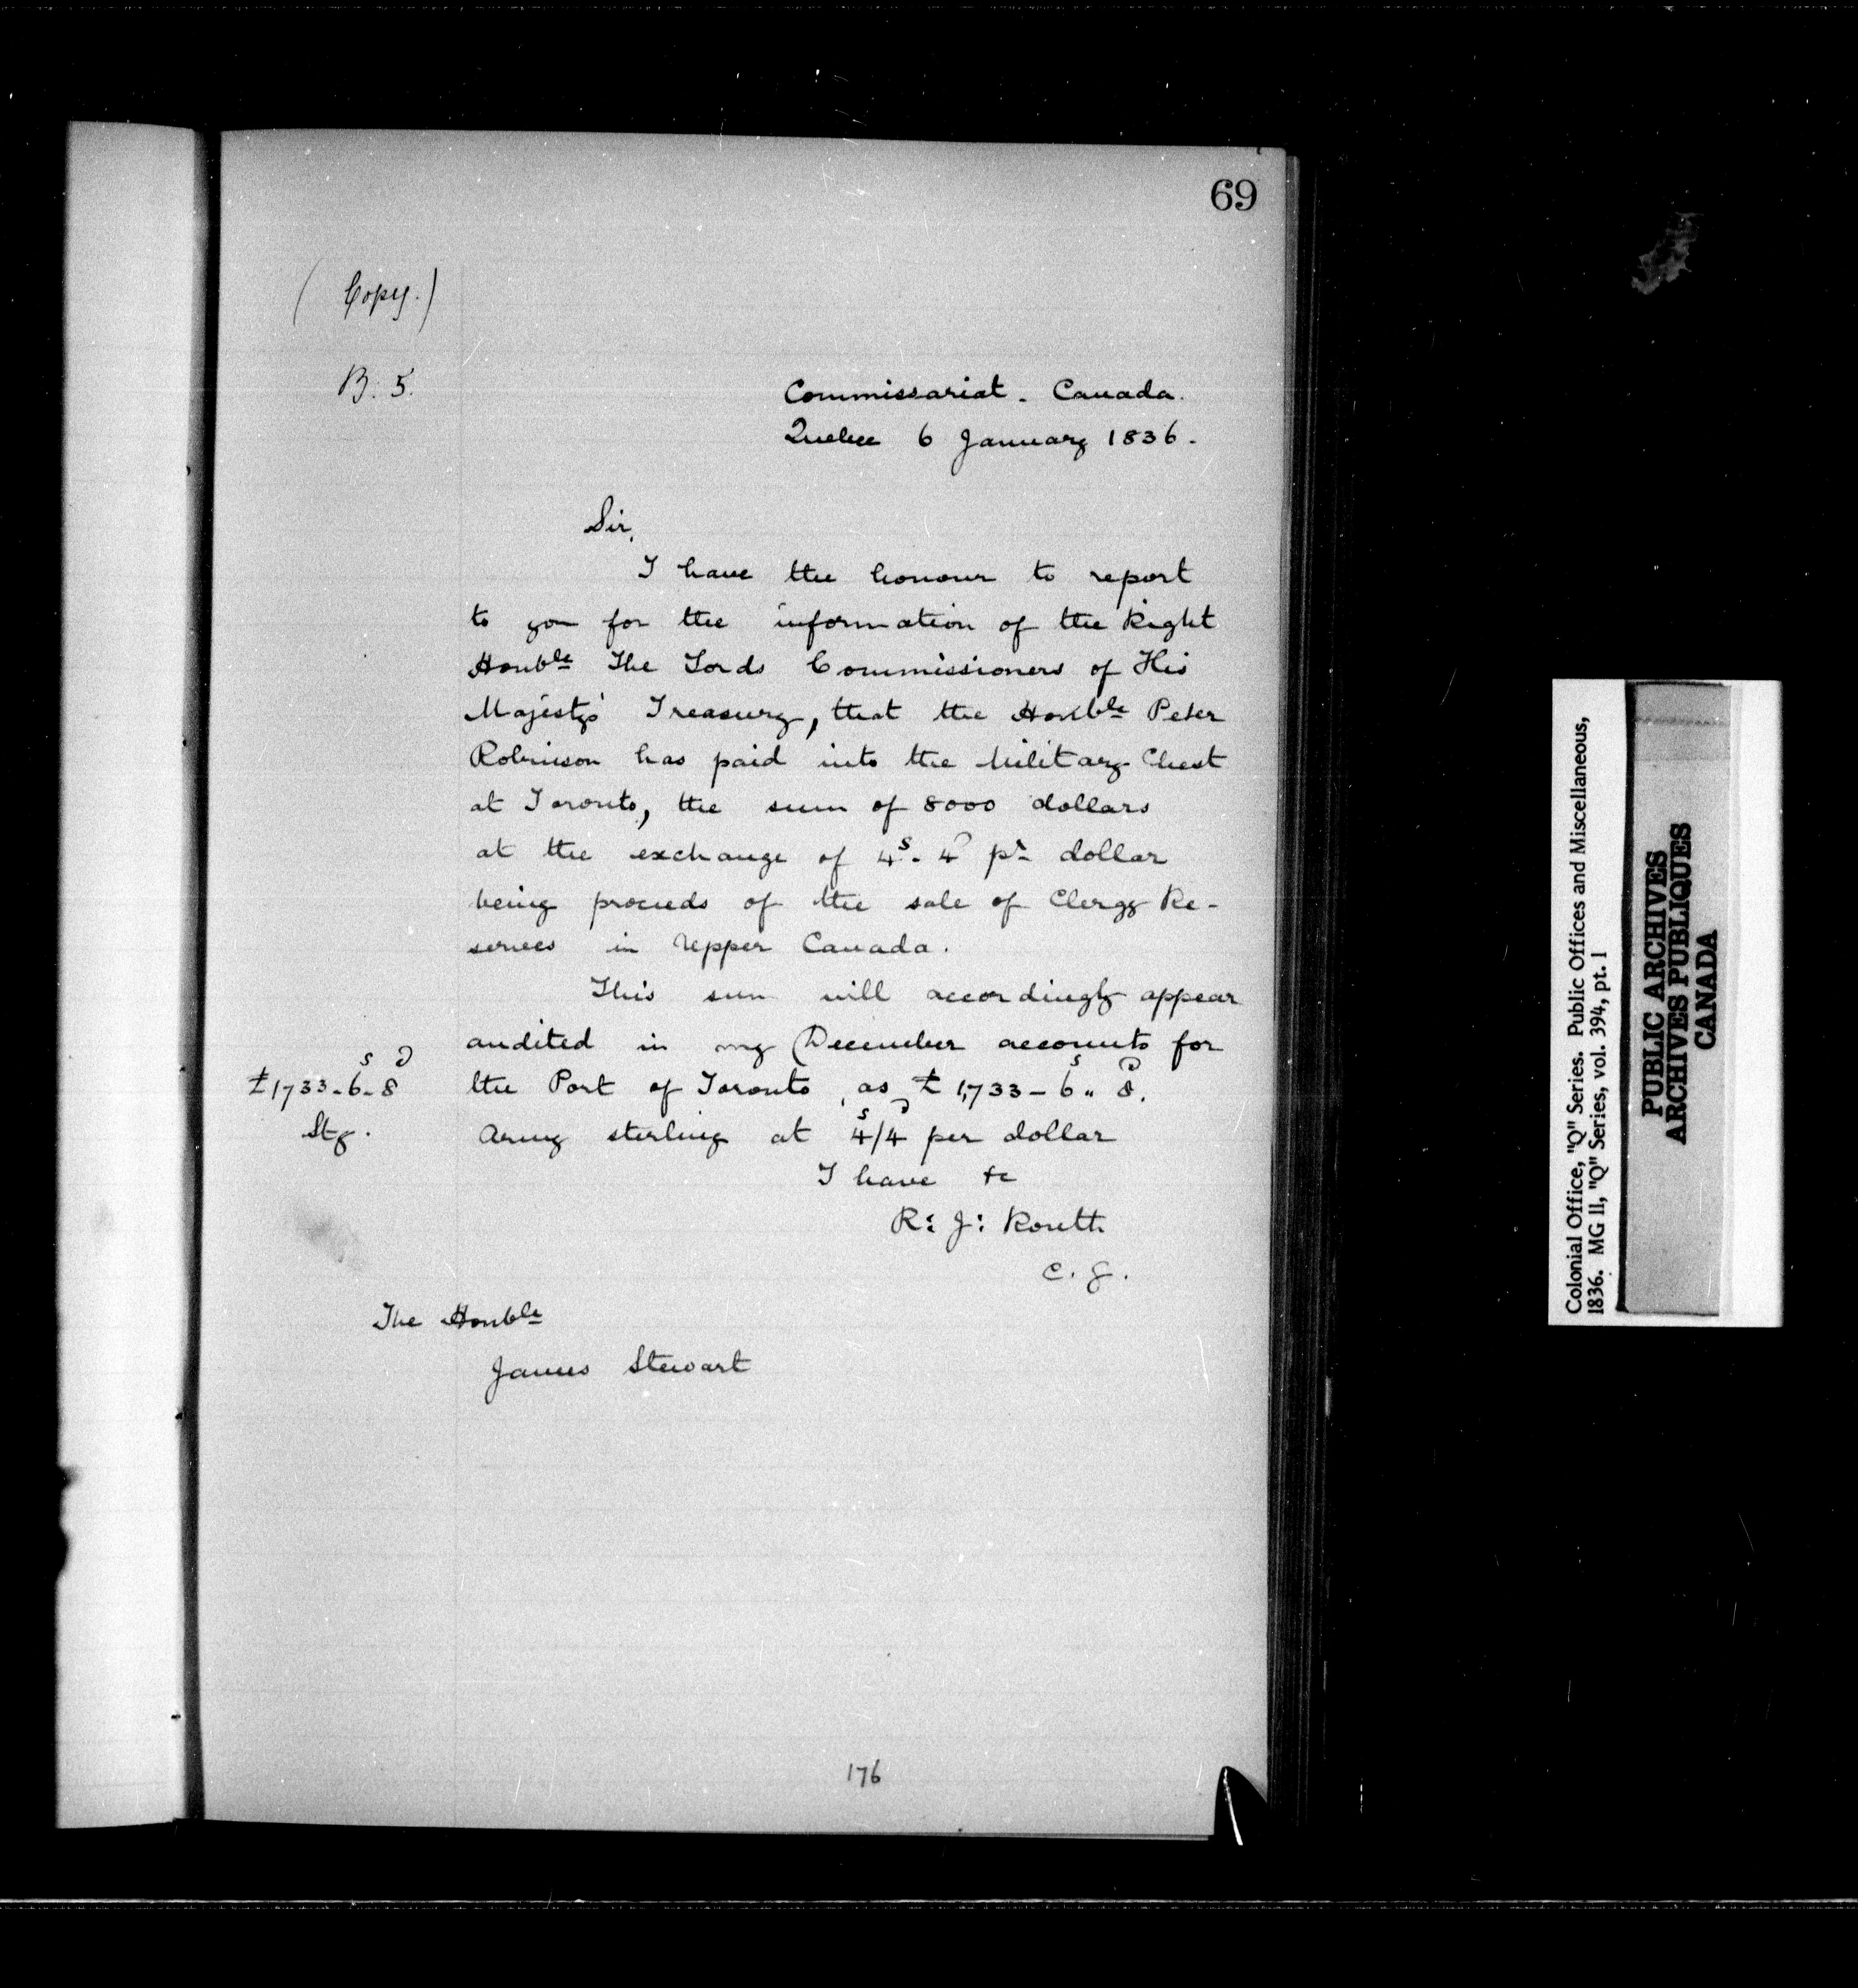 69
(Copy.)
B. 5.
Commissariat. Canada.
Quebec 6 January 1836.
Sir,
I have the honour to report
to you for the information of the Right
Honble The Lords Commissioners of His
Majesty's Treasury, that the Honble Peter
Robinson has paid into the Military Chest
at Toronto, the sum of 8000 dollars
at the exchange of 4s. 4d pr dollar
being proceeds of the sale of Clergy Re-
serves in Upper Canada.
This sum will accordingly appear
audited in my December accounts for
the Port of Toronto, as £1,733-6s.. 8d.
Army sterling at 4s/4d per dollar
£1733-6s-8d
Stg.
I have &c
R: J: Routh
C. G.
The Honble
James Stewart
176
Colonial Office, "Q" Series. Public Offices and Miscellaneous,
1836. MG II, "Q" Series, vol. 394, pt. 1
PUBLIC ARCHIVES
ARCHIVES PUBLIQUES
CANADA